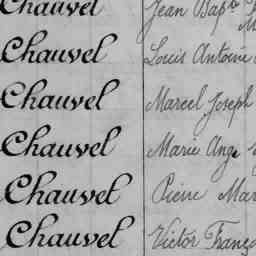 Chauvel Jean Bapte
Chauvel Louis Antoine
Chauvel Marcel Joseph
Chauvel Marie Ange
Chauvel Pierre Mar
Chauvel Victor Franç